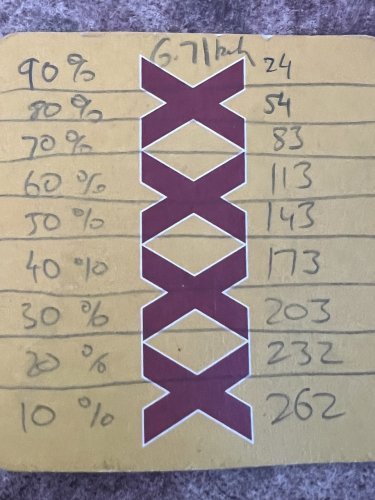 6.71kwh
90% 24
80% 54
70% 83
60% 113
50% 143
40% 173
30% 203
20% 232
10% 262
XXXX